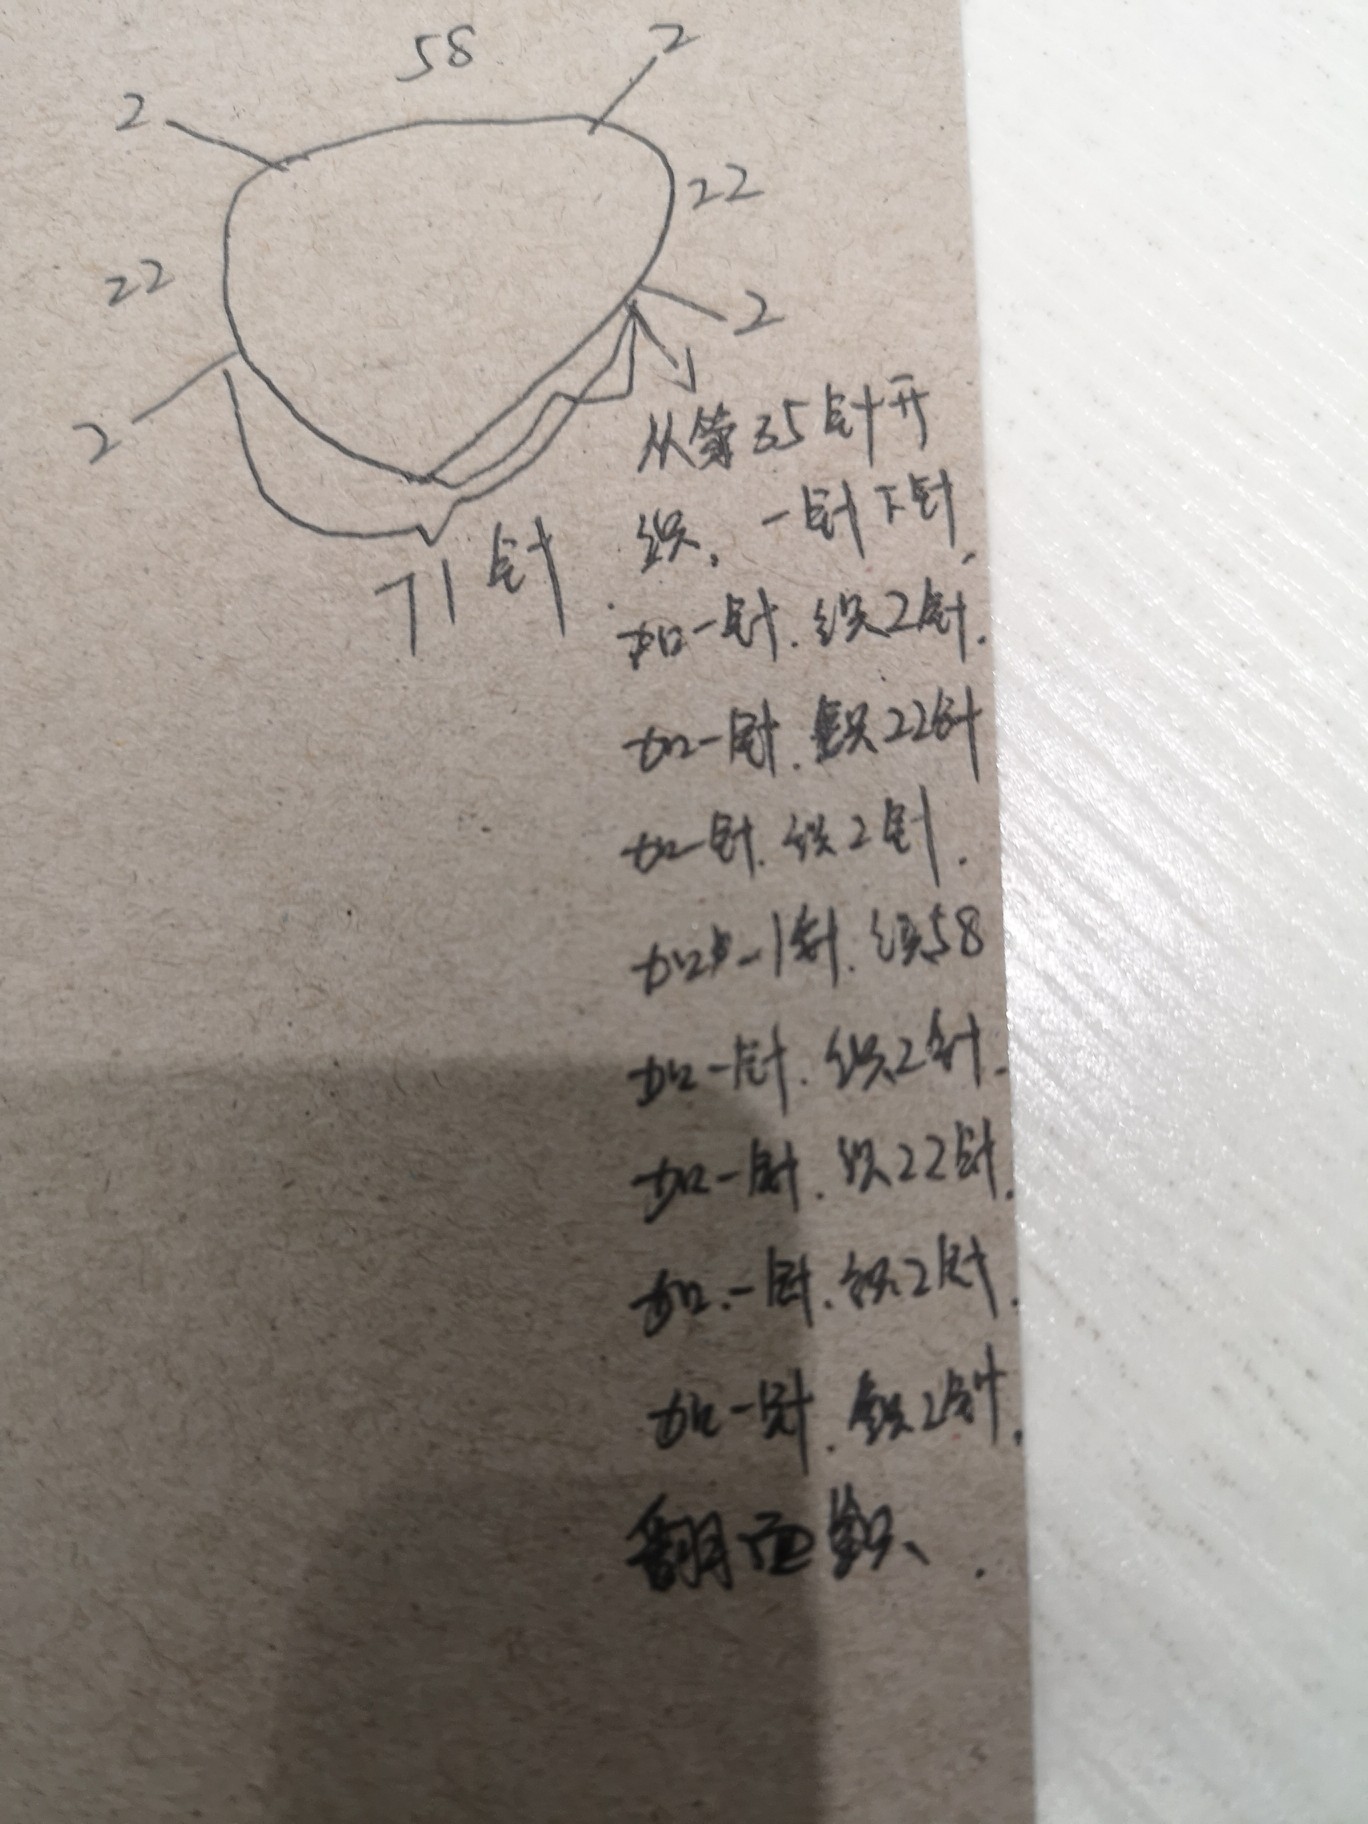 58
2
2
22
22
2
2
71针.
从第35针开
织. 一针下针.
加一针. 织2针.
加一针. 织22针
加一针. 织2针.
加一针. 织58
加一针. 织2针.
加一针. 织22针.
加一针. 织2针.
加一针. 织2针.
翻面织.